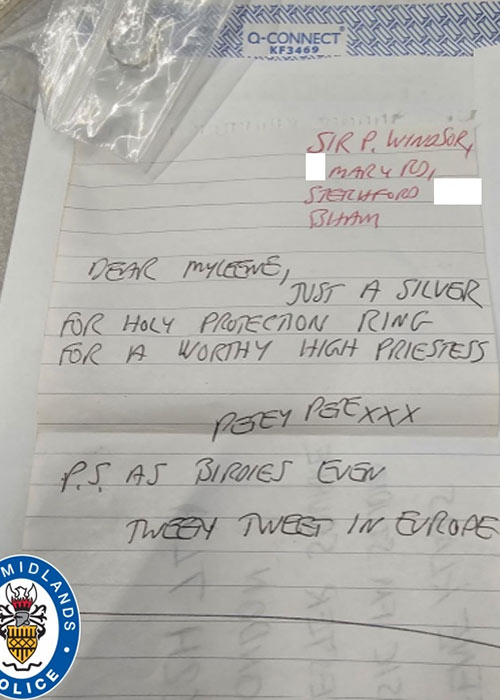 Q-CONNECT
KF3469
SIR P. WINDSOR,
MARY RD,
STECHFORD
BHAM
DEAR MYLEENE,
JUST A SILVER
FOR HOLY PROTECTION RING
FOR A WORTHY HIGH PRIESTESS
PETEY PETE XXX
P.S. AS BIRDIES EVEN
TWEEY TWEET IN EUROPE
MIDLANDS
POLICE